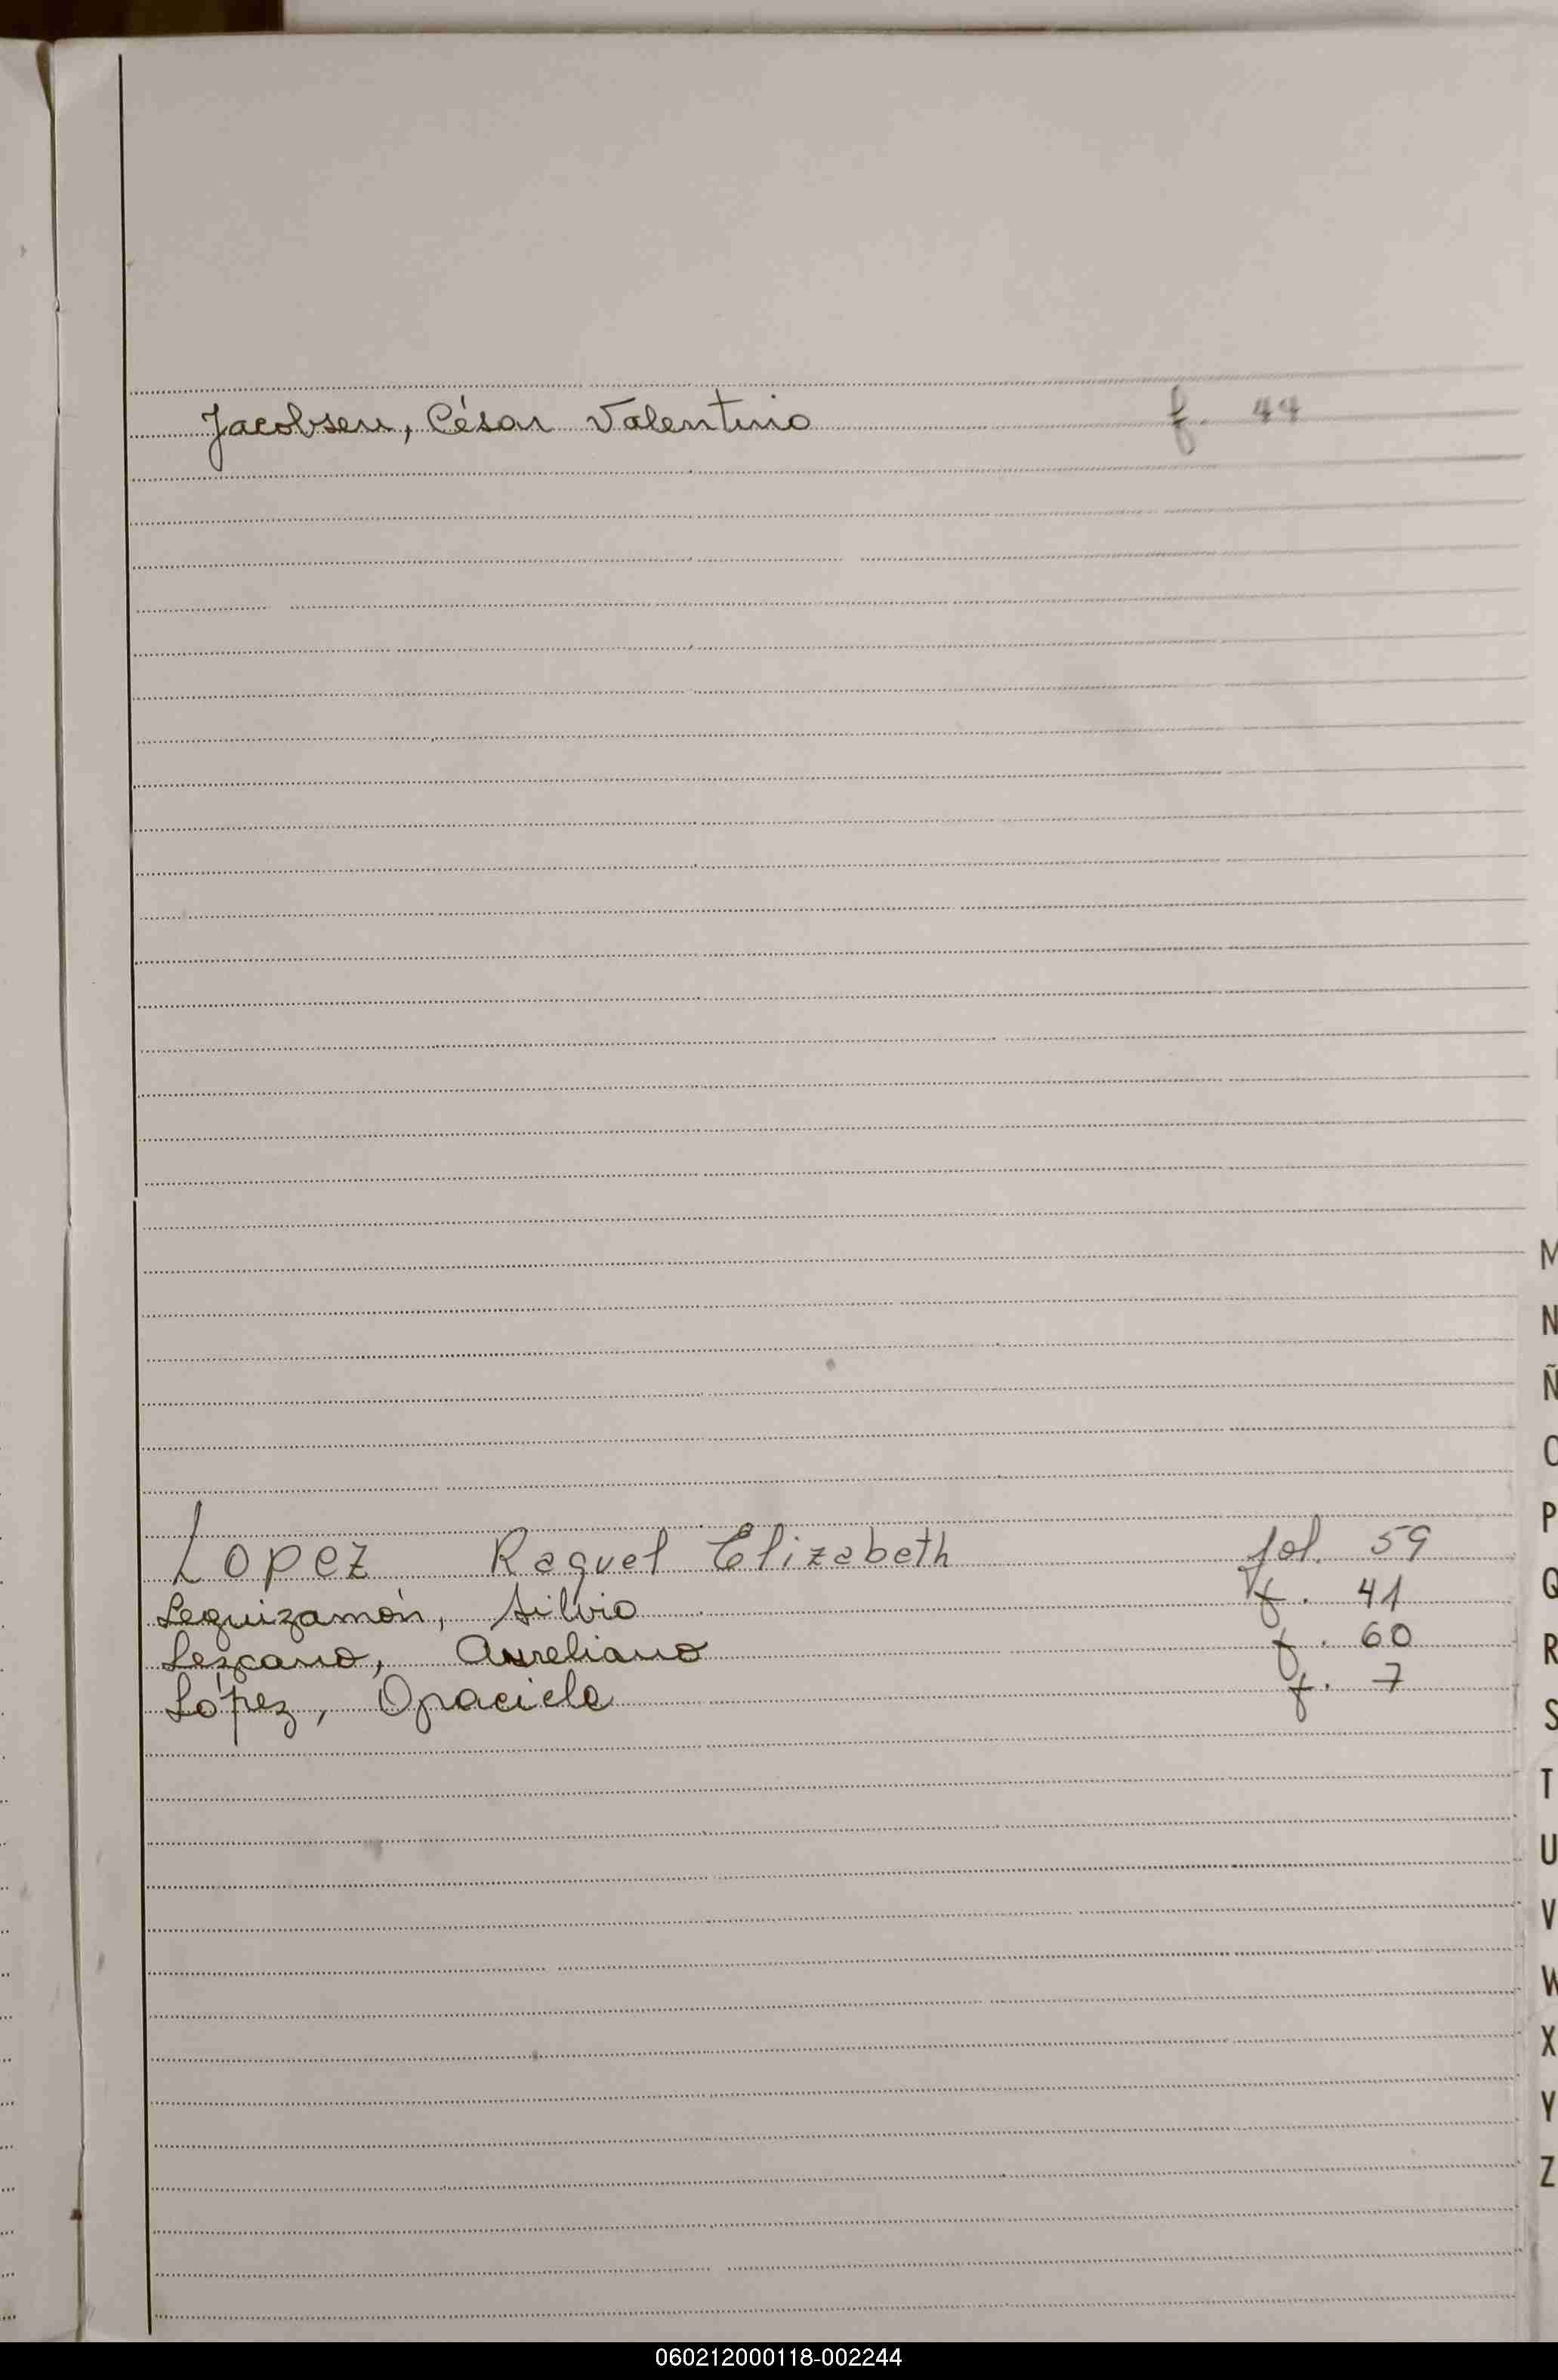 Jacobsen, César Valentino f. 44
Lopez Raquel Elizabeth fol. 59
Leguizamón, Silvio f. 41
Lezcano, Aureliano f. 60
López, Graciela f. 7
M
N
Ñ
O
P
Q
R
S
T
U
V
W
X
Y
Z
060212000118-002244